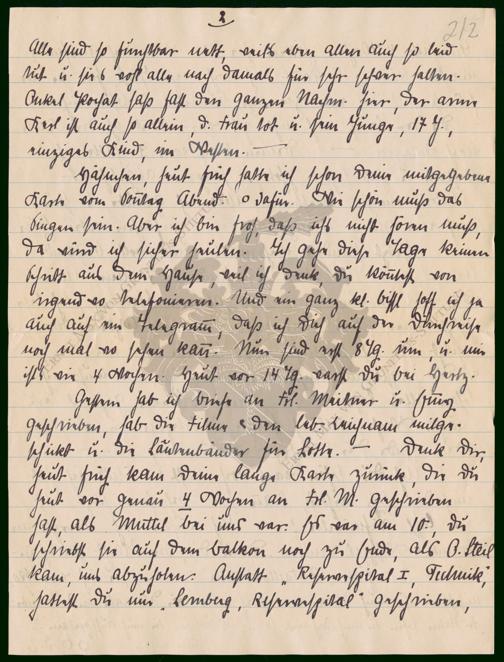 2
212
Alle sind so furchtbar nett, weils eben allen auch so leid
tut u. sie's wohl alle nach damals für sehr schwer halten.
Onkel Kochat saß fast den ganzen Nachm. hier, der arme
Kerl ist auch so allein, d. Frau tot u. sein Junge, 17 J.,
einziges Kind, im Westen. —
Hähnchen, heut früh hatte ich schon Deine mitgegebene
Karte vom Sonntag Abend. dafür. Wie schön muß das
Singen sein. Aber ich bin froh, daß ichs nicht hören muß,
da würd ich sicher heulen. Ich gehe diese Tage keinen
Schritt aus dem Hause, weil ich denk du könntest von
irgendwo telefonieren. Und ein ganz kl. bißl hoff ich ja
auch auf ein Telegramm, daß ich Dich auf der Durchreise
noch mal wo sehen kann. Nun sind erst 8 Tg. um, u. mir
ists wie 4 Wochen. Heut vor 14 Tg. warst Du bei Hertz.
Gestern hab ich Briefe an Frl. Meitner u.
geschrieben, hab die Filme & den leb. Leichnam mitge-
schickt u. die Lautenbänder für Lotte. — Denk Dir,
heut früh kam Deine lange Karte zurück, die du
heut vor genau 4 Wochen an Frl. M. geschrieben
hast als Muttel bei uns war. Es war am 10. du
schriebst sie auf dem Balkon noch zu Ende, als O. Steil
kam, uns abzuholen. Anstatt „Reservespital I, Technik",
hattest Du nur „Lemberg, Reservespital" geschrieben,